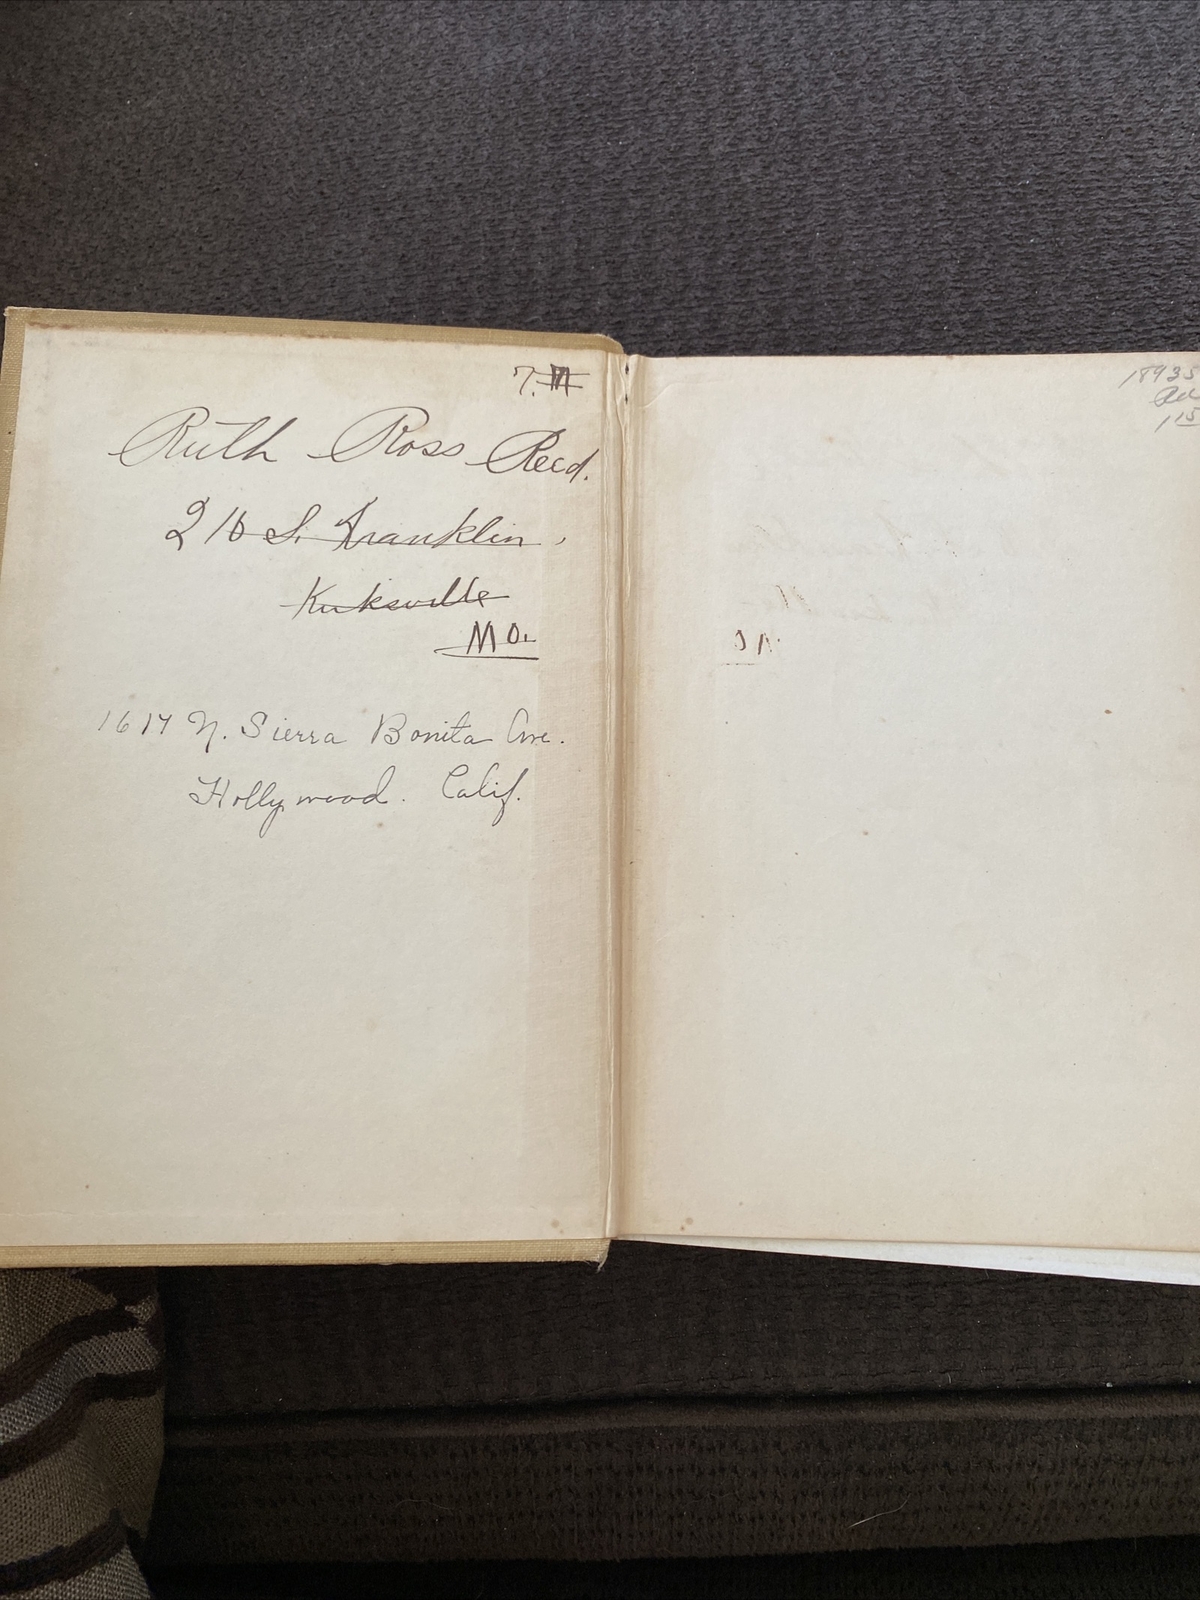 Ruth Ross Reed.
216 S. Franklin.
Kirksville
MO.
1617 N. Sierra Bonita Ave.
Hollywood. Calif.
18935
1 15